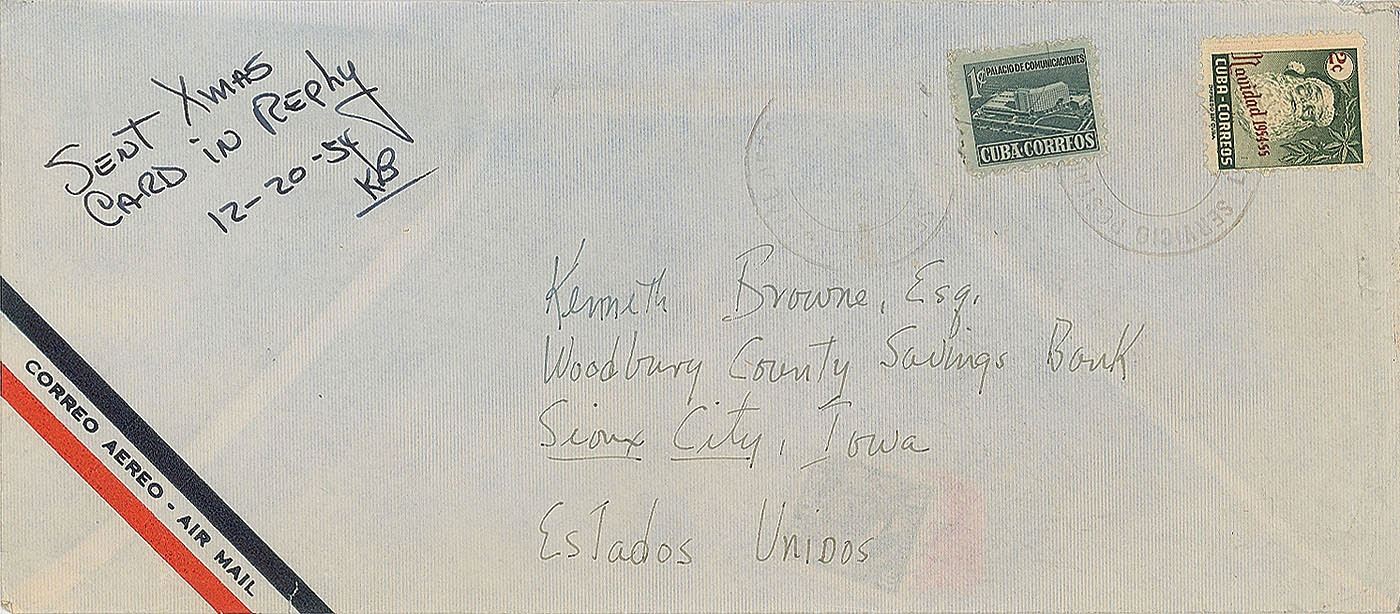 SENT XMAS
CARD IN REPHY
12-20-54
KB
1¢ PALACIO DE COMUNICACIONES
CUBA CORREOS
2c
Navidad 1954-55
CUBA-CORREOS
SERVICIO
Kenneth Browne, Esq.
Woodbury County Savings Bank
Sioux City, Iowa
Estados Unidos
CORREO AEREO - AIR MAIL